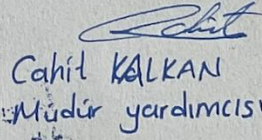 Cahit KALKAN
Müdür yardımcısı